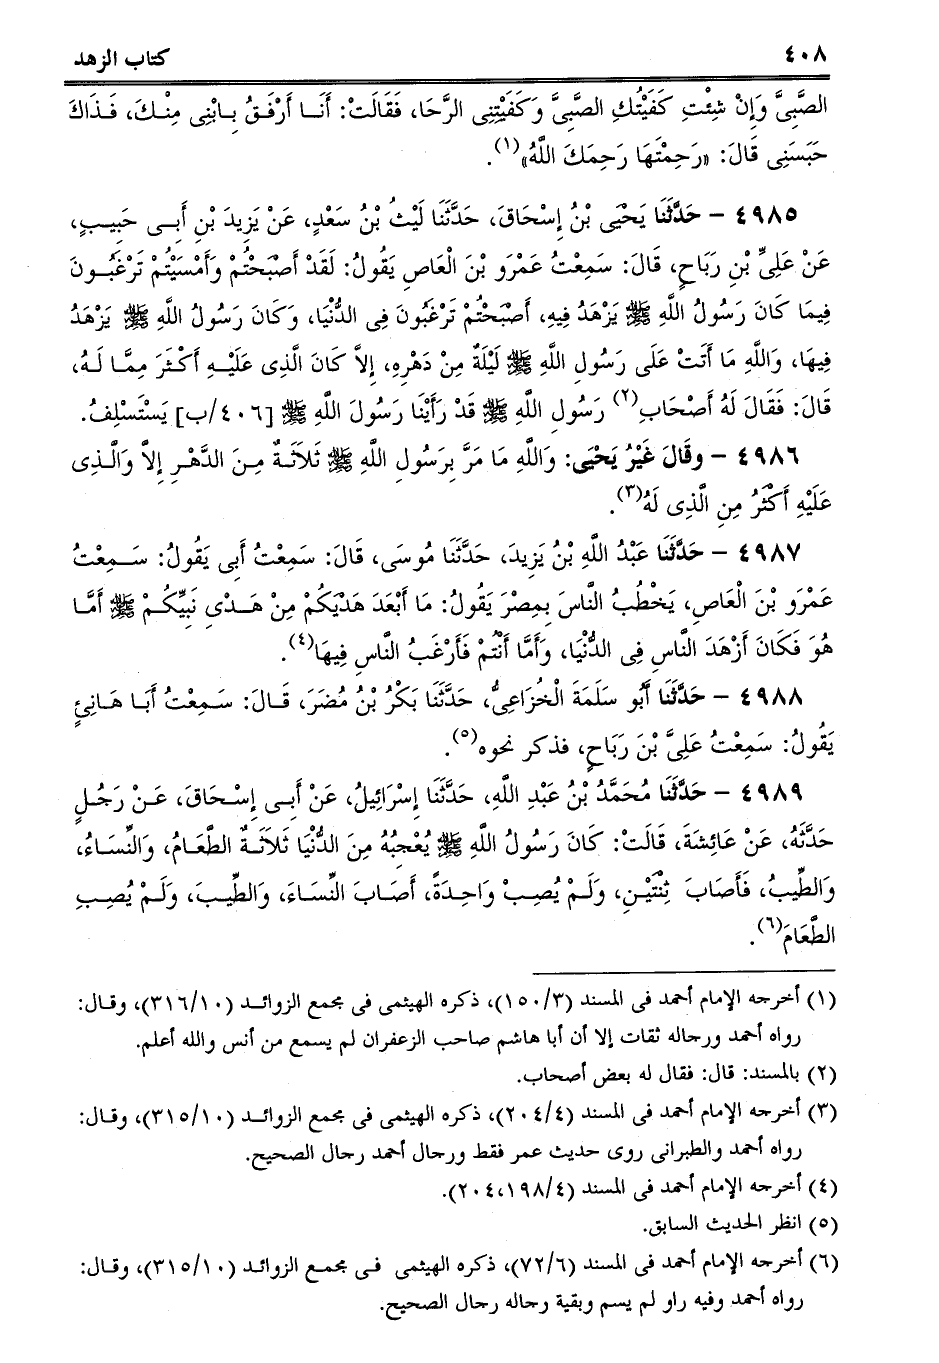 ٤٠٨ كتاب الزهد
الصَّبِىَّ وَإِنْ شِئْتِ كَفَيْتُكِ الصَّبِىَّ وَكَفَيْتِنِى الرَّحَا، فَقَالَتْ: أَنَا أَرْفَقُ بِابْنِى مِنْكَ، فَذَاكَ
حَبَسَنِى قَالَ: «رَحِمْتَهَا رَحِمَكَ اللَّهُ»(١).
٤٩٨٥ – حَدَّثَنَا يَحْيَى بْنُ إِسْحَاقَ، حَدَّثَنَا لَيْثُ بْنُ سَعْدٍ، عَنْ يَزِيدَ بْنِ أَبِى حَبِيبٍ،
عَنْ عَلِىِّ بْنِ رَبَاحٍ، قَالَ: سَمِعْتُ عَمْرَو بْنَ الْعَاصِ يَقُولُ: لَقَدْ أَصْبَحْتُمْ وَأَمْسَيْتُمْ تَرْغَبُونَ
فِيمَا كَانَ رَسُولُ اللَّهِ ﷺ يَزْهَدُ فِيهِ، أَصْبَحْتُمْ تَرْغَبُونَ فِى الدُّنْيَا، وَكَانَ رَسُولُ اللَّهِ ﷺ يَزْهَدُ
فِيهَا، وَاللَّهِ مَا أَتَتْ عَلَى رَسُولِ اللَّهِ ﷺ لَيْلَةٌ مِنْ دَهْرِهِ، إِلاَّ كَانَ الَّذِى عَلَيْهِ أَكْثَرَ مِمَّا لَهُ،
قَالَ: فَقَالَ لَهُ أَصْحَابِ(٢) رَسُولِ اللَّهِ ﷺ قَدْ رَأَيْنَا رَسُولَ اللَّهِ ﷺ [٤٠٦/ب] يَسْتَسْلِفُ.
٤٩٨٦ – وقَالَ غَيْرُ يَحْيَى: وَاللَّهِ مَا مَرَّ بِرَسُولِ اللَّهِ ﷺ ثَلاَثَةٌ مِنَ الدَّهْرِ إِلاَّ وَالَّذِى
عَلَيْهِ أَكْثَرُ مِنِ الَّذِى لَهُ(٣).
٤٩٨٧ – حَدَّثَنَا عَبْدُ اللَّهِ بْنُ يَزِيدَ، حَدَّثَنَا مُوسَى، قَالَ: سَمِعْتُ أَبِى يَقُولُ: سَمِعْتُ
عَمْرَو بْنَ الْعَاصِ، يَخْطُبُ النَّاسَ بِمِصْرَ يَقُولُ: مَا أَبْعَدَ هَدْيَكُمْ مِنْ هَدْىِ نَبِيِّكُمْ ﷺ أَمَّا
هُوَ فَكَانَ أَزْهَدَ النَّاسِ فِى الدُّنْيَا، وَأَمَّا أَنْتُمْ فَأَرْغَبُ النَّاسِ فِيهَا(٤).
٤٩٨٨ – حَدَّثَنَا أَبُو سَلَمَةَ الْخُزَاعِىُّ، حَدَّثَنَا بَكْرُ بْنُ مُضَرَ، قَالَ: سَمِعْتُ أَبَا هَانِئٍ
يَقُولُ: سَمِعْتُ عَلِىَّ بْنَ رَبَاحٍ، فذكر نحوه(٥).
٤٩٨٩ – حَدَّثَنَا مُحَمَّدُ بْنُ عَبْدِ اللَّهِ، حَدَّثَنَا إِسْرَائِيلُ، عَنْ أَبِى إِسْحَاقَ، عَنْ رَجُلٍ
حَدَّثَهُ، عَنْ عَائِشَةَ، قَالَتْ: كَانَ رَسُولُ اللَّهِ ﷺ يُعْجِبُهُ مِنَ الدُّنْيَا ثَلاَثَةٌ الطَّعَامُ، وَالنِّسَاءُ،
وَالطِّيبُ، فَأَصَابَ ثِنْتَيْنِ، وَلَمْ يُصِبْ وَاحِدَةً، أَصَابَ النِّسَاءَ، وَالطِّيبَ، وَلَمْ يُصِبِ
الطَّعَامَ(٦).
(١) أخرجه الإمام أحمد فى المسند (١٥٠/٣)، ذكره الهيثمى فى مجمع الزوائد (٣١٦/١٠)، وقال:
رواه أحمد ورجاله ثقات إلا أن أبا هاشم صاحب الزعفران لم يسمع من أنس والله أعلم.
(٢) بالمسند: قال: فقال له بعض أصحاب.
(٣) أخرجه الإمام أحمد فى المسند (٢٠٤/٤)، ذكره الهيثمى فى مجمع الزوائد (٣١٥/١٠)، وقال:
رواه أحمد والطبرانى روى حديث عمر فقط ورجال أحمد رجال الصحيح.
(٤) أخرجه الإمام أحمد فى المسند (١٩٨/٤، ٢٠٤).
(٥) انظر الحديث السابق.
(٦) أخرجه الإمام أحمد فى المسند (٧٢/٦)، ذكره الهيثمى فى مجمع الزوائد (٣١٥/١٠)، وقال:
رواه أحمد وفيه راو لم يسم وبقية رجاله رجال الصحيح.